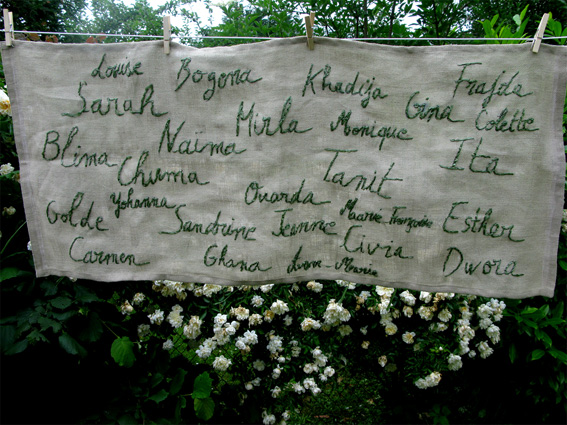 Louise Bogona Khadija Frajda
Sarah Mirla Monique Gina Colette
Blima Naïma Ita
Chuma Tanit
Golde Yohanna Ouarda
Sandrine Jeanne Esther
Carmen Ghana Civia Dwora